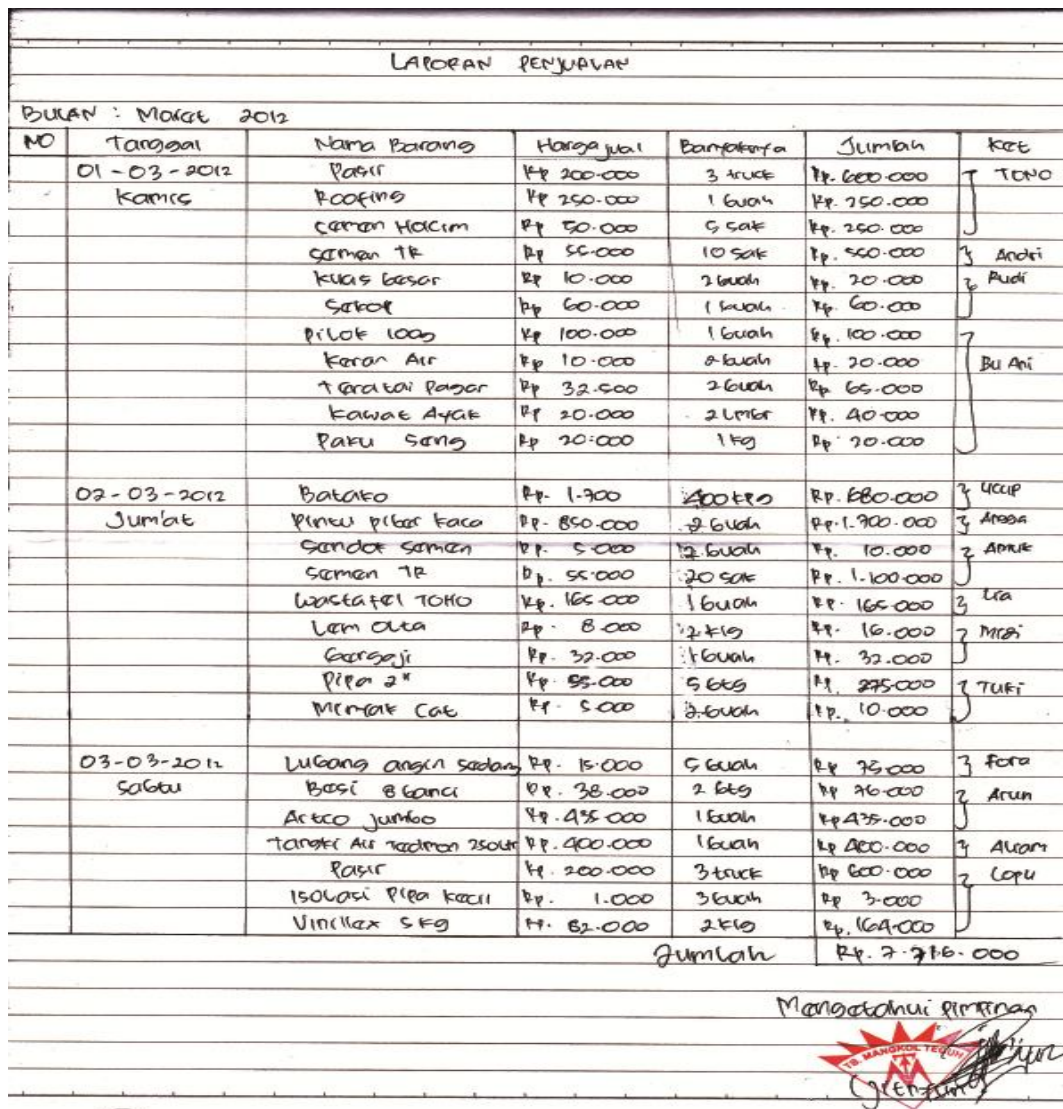 LAPORAN PENJUALAN
BULAN : Maret 2012
NO Tanggal Nama Barang Harga jual Banyaknya Jumlah Ket
01-03-2012 Pasir Rp 200.000 3 truck Rp. 600.000 TONO
Kamis Roofing Rp 250.000 1 buah Rp. 250.000
Semen Holcim Rp 50.000 5 sak Rp. 250.000
Semen TR Rp 55.000 10 sak Rp. 550.000 Andri
Kuas besar Rp 10.000 2 buah Rp. 20.000 Rudi
Sekop Rp 60.000 1 buah Rp. 60.000
Pilok 100g Rp 100.000 1 buah Rp. 100.000
Keran Air Rp 10.000 2 buah Rp. 20.000 Bu Ani
Teratai Pagar Rp 32.500 2 buah Rp 65.000
Kawat Ayak Rp 20.000 2 Lmbr Rp. 40.000
Paku Seng Rp 20.000 1 kg Rp 20.000
02-03-2012 Batako Rp. 1.700 400 kpg Rp. 680.000 Ucup
Jum'at Pintu piber kaca Rp. 850.000 2 buah Rp. 1.700.000 Angga
Sendok Semen Rp. 5.000 2 buah Rp. 10.000
Semen TR Rp. 55.000 20 sak Rp. 1.100.000
Wastafel TOHO Rp. 165.000 1 buah Rp. 165.000 Lia
Lem Rp. 8.000 2 klg Rp. 16.000
Gergaji Rp. 32.000 1 buah Rp. 32.000
Pipa 2" Rp. 55.000 5 btg Rp. 275.000 Tuki
Minyak Cat Rp. 5.000 2 buah Rp. 10.000
03-03-2012 Lubang angin sedang Rp. 15.000 5 buah Rp 75.000 Fera
Sabtu Besi 8 banci Rp. 38.000 2 btg Rp 76.000 Arun
Artco jumbo Rp. 435.000 1 buah Rp 435.000
Tangki Air Tedmon 250 Ltr Rp. 400.000 1 buah Rp 400.000
Pasir Rp. 200.000 3 truck Rp 600.000
Isolasi Pipa Kecil Rp. 1.000 3 buah Rp 3.000
Vinillex 5 kg Rp. 82.000 2 klg Rp. 164.000
Jumlah Rp. 7.716.000
Mengetahui Pimpinan
TB. MANGKOL TEGUH